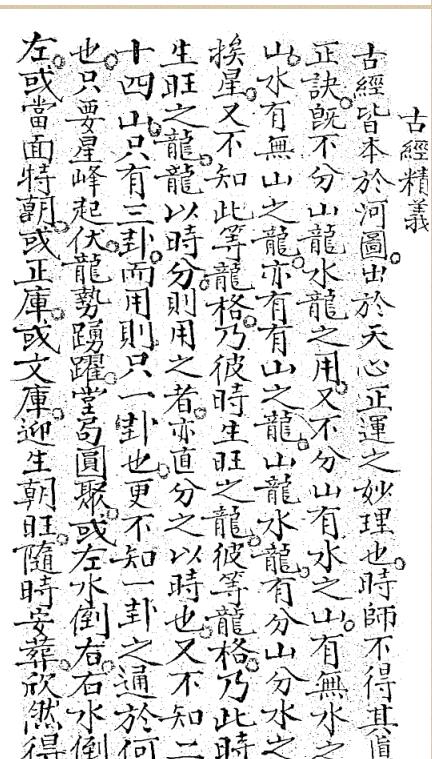 古經精義
古經皆本於河圖出於天心正運之妙理也時師不得其眞
正訣既不分山龍水龍之用又不分山有水之山有無水之
山水有無山之龍亦有有山之龍山龍水龍有分山分水之
挨星又不知此等龍格乃彼時生旺之龍彼等龍格乃此時
生旺之龍龍以時分則用之者亦直分之以時也又不知二
十四山只有三卦而用則只一卦也更不知一卦之通於何
也只要星峰起伏龍勢踴躍堂局圓聚或左水倒右右水倒
左或當面特朝或正庫或文庫迎生朝旺隨時安葬欣然得